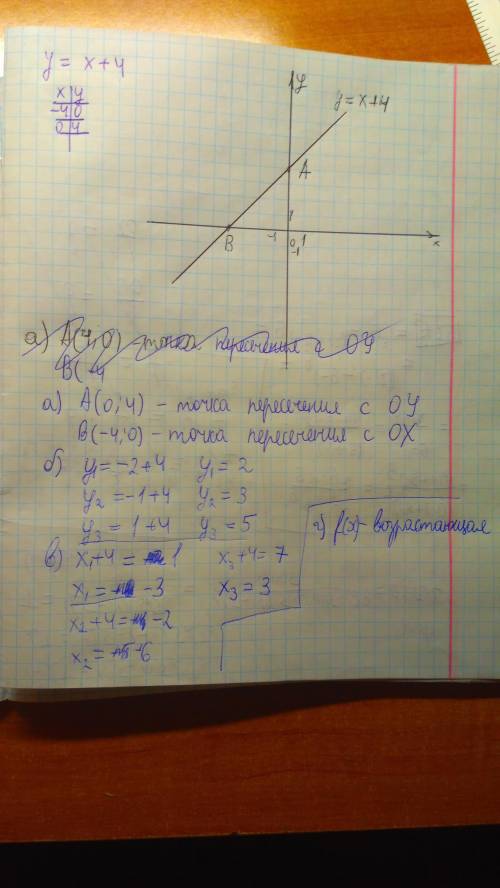 y = x+4
x y
-4 0
0 4
y
y=x+4
A
B
-1 0 1
1
-1
x
а) A(4;0) - точка пересечения с OY
B(-4
а) A(0;4) - точка пересечения с OY
B(-4;0) - точка пересечения с OX
б) y₁=-2+4 y₁=2
y₂=-1+4 y₂=3
y₃=1+4 y₃=5
в) x₁+4=1 x₃+4=7
x₁=-3 x₃=3
x₂+4=-2
x₂=-6
г) f(x)-возрастающая